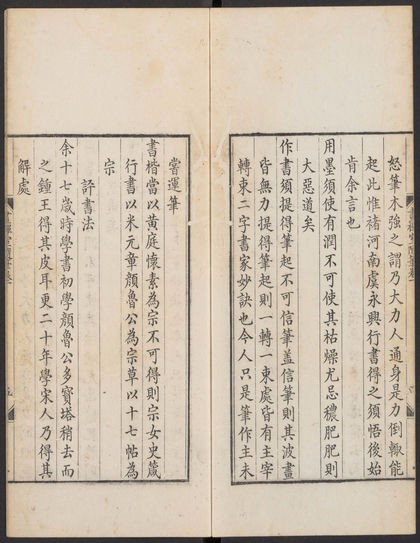 怒筆木強之謂乃大力人通身是力倒輙能
起此惟褚河南虞永興行書得之須悟後始
肯余言也
用墨須使有潤不可使其枯燥尤忌穠肥肥則
大惡道矣
作書須提得筆起不可信筆盖信筆則其波畫
皆無力提得筆起則一轉一束處皆有主宰
轉束二字書家妙訣也今人只是筆作主未
嘗運筆
書楷當以黃庭懷素為宗不可得則宗女史箴
行書以米元章顔魯公為宗草以十七帖為
宗
評書法
余十七歲時學書初學顔魯公多寶塔稍去而
之鍾王得其皮耳更二十年學宋人乃得其
解處